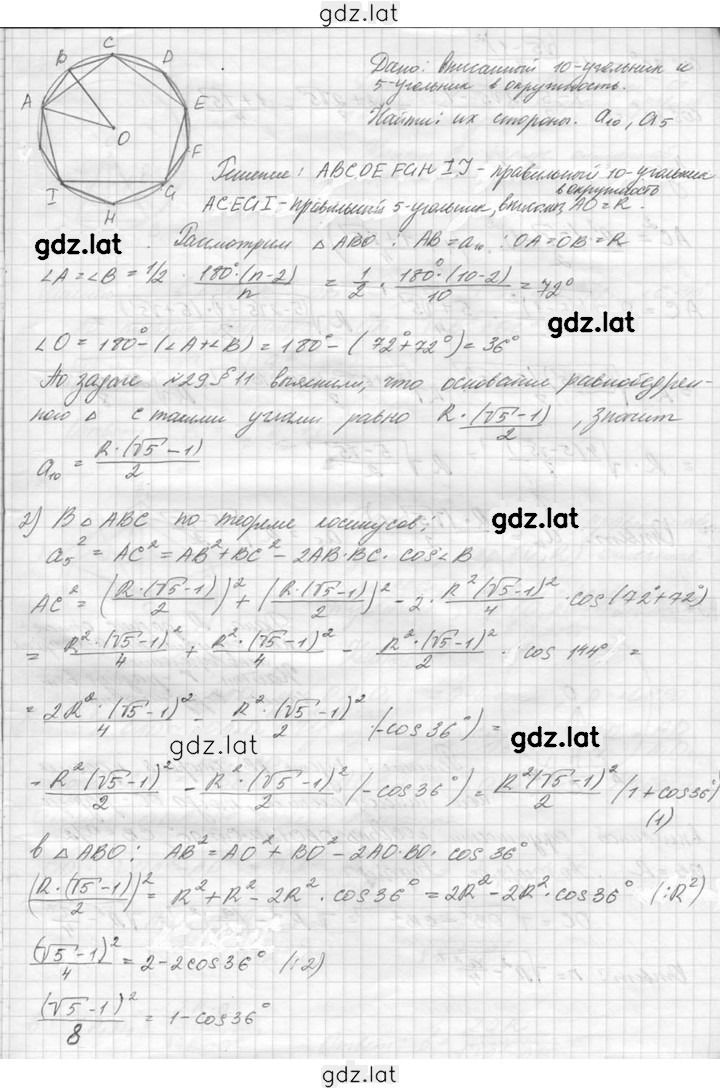 gdz.lat
C
B
D
A
E
O
F
I
G
H
Дано: вписанный 10-угольник и
5-угольник в окружность.
Найти: их стороны. a₁₀, a₅
Решение: ABCDEFGHIJ - правильный 10-угольник
в окружность
ACEGI - правильный 5-угольник, вписаны AO = R.
gdz.lat
Рассмотрим △ ABO : AB = a₁₀ : OA = OB = R
∠A = ∠B = 1/2 · (180°·(n-2))/n = 1/2 · (180°·(10-2))/10 = 72°
gdz.lat
∠O = 180° - (∠A + ∠B) = 180° - (72° + 72°) = 36°
По задаче №29 § 11 выяснили, что основание равнобедрен-
ного △ с такими углами равно (R·(√5-1))/2, значит
a₁₀ = (R·(√5-1))/2
2) В △ ABC по теореме косинусов,
gdz.lat
a₅² = AC² = AB² + BC² - 2AB·BC · cos∠B
AC² = ((R·(√5-1))/2)² + ((R·(√5-1))/2)² - 2 · (R²(√5-1)²)/4 · cos(72° + 72°)
= (R²·(√5-1)²)/4 + (R²·(√5-1)²)/4 - (R²·(√5-1)²)/2 · cos 144° =
= (2R²·(√5-1)²)/4 - (R²·(√5-1)²)/2 · (-cos36°) =
gdz.lat
gdz.lat
- (R²(√5-1)²)/2 - (R²·(√5-1)²)/2 (-cos36°) = (R²(√5-1)²)/2 (1 + cos36°)
(1)
в △ ABO: AB² = AO² + BO² - 2AO·BO· cos36°
((R·(√5-1))/2)² = R² + R² - 2R² · cos36° = 2R² - 2R²·cos36° (:R²)
(√5-1)²/4 = 2 - 2cos36° (:2)
(√5-1)²/8 = 1 - cos36°
gdz.lat
gdz.lat